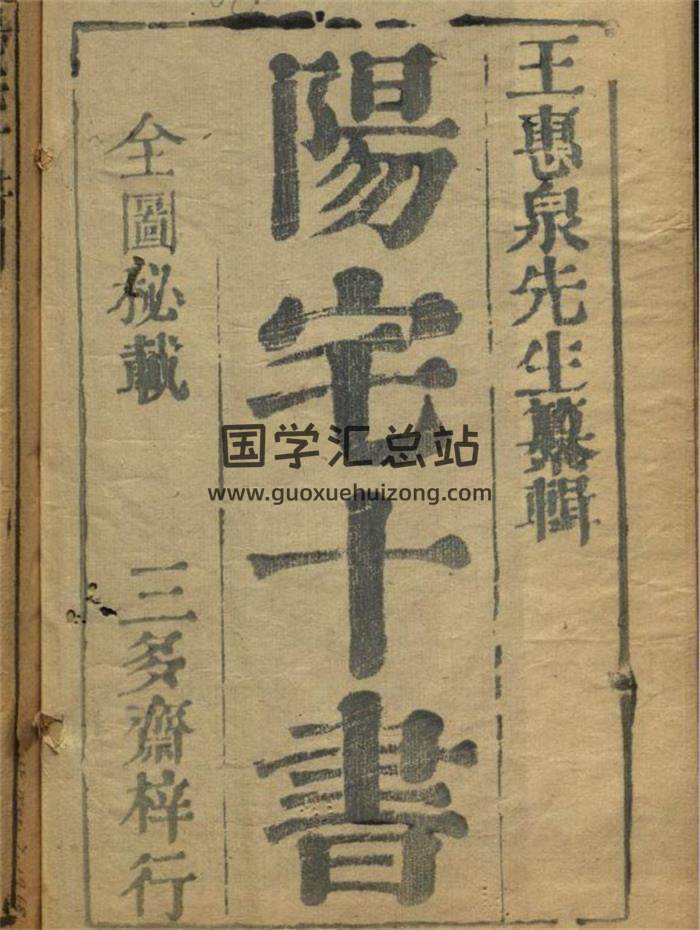 王惠泉先生纂輯
陽宅十書
全圖秘載
三多齋梓行
国学汇总站
www.guoxuehuizong.com